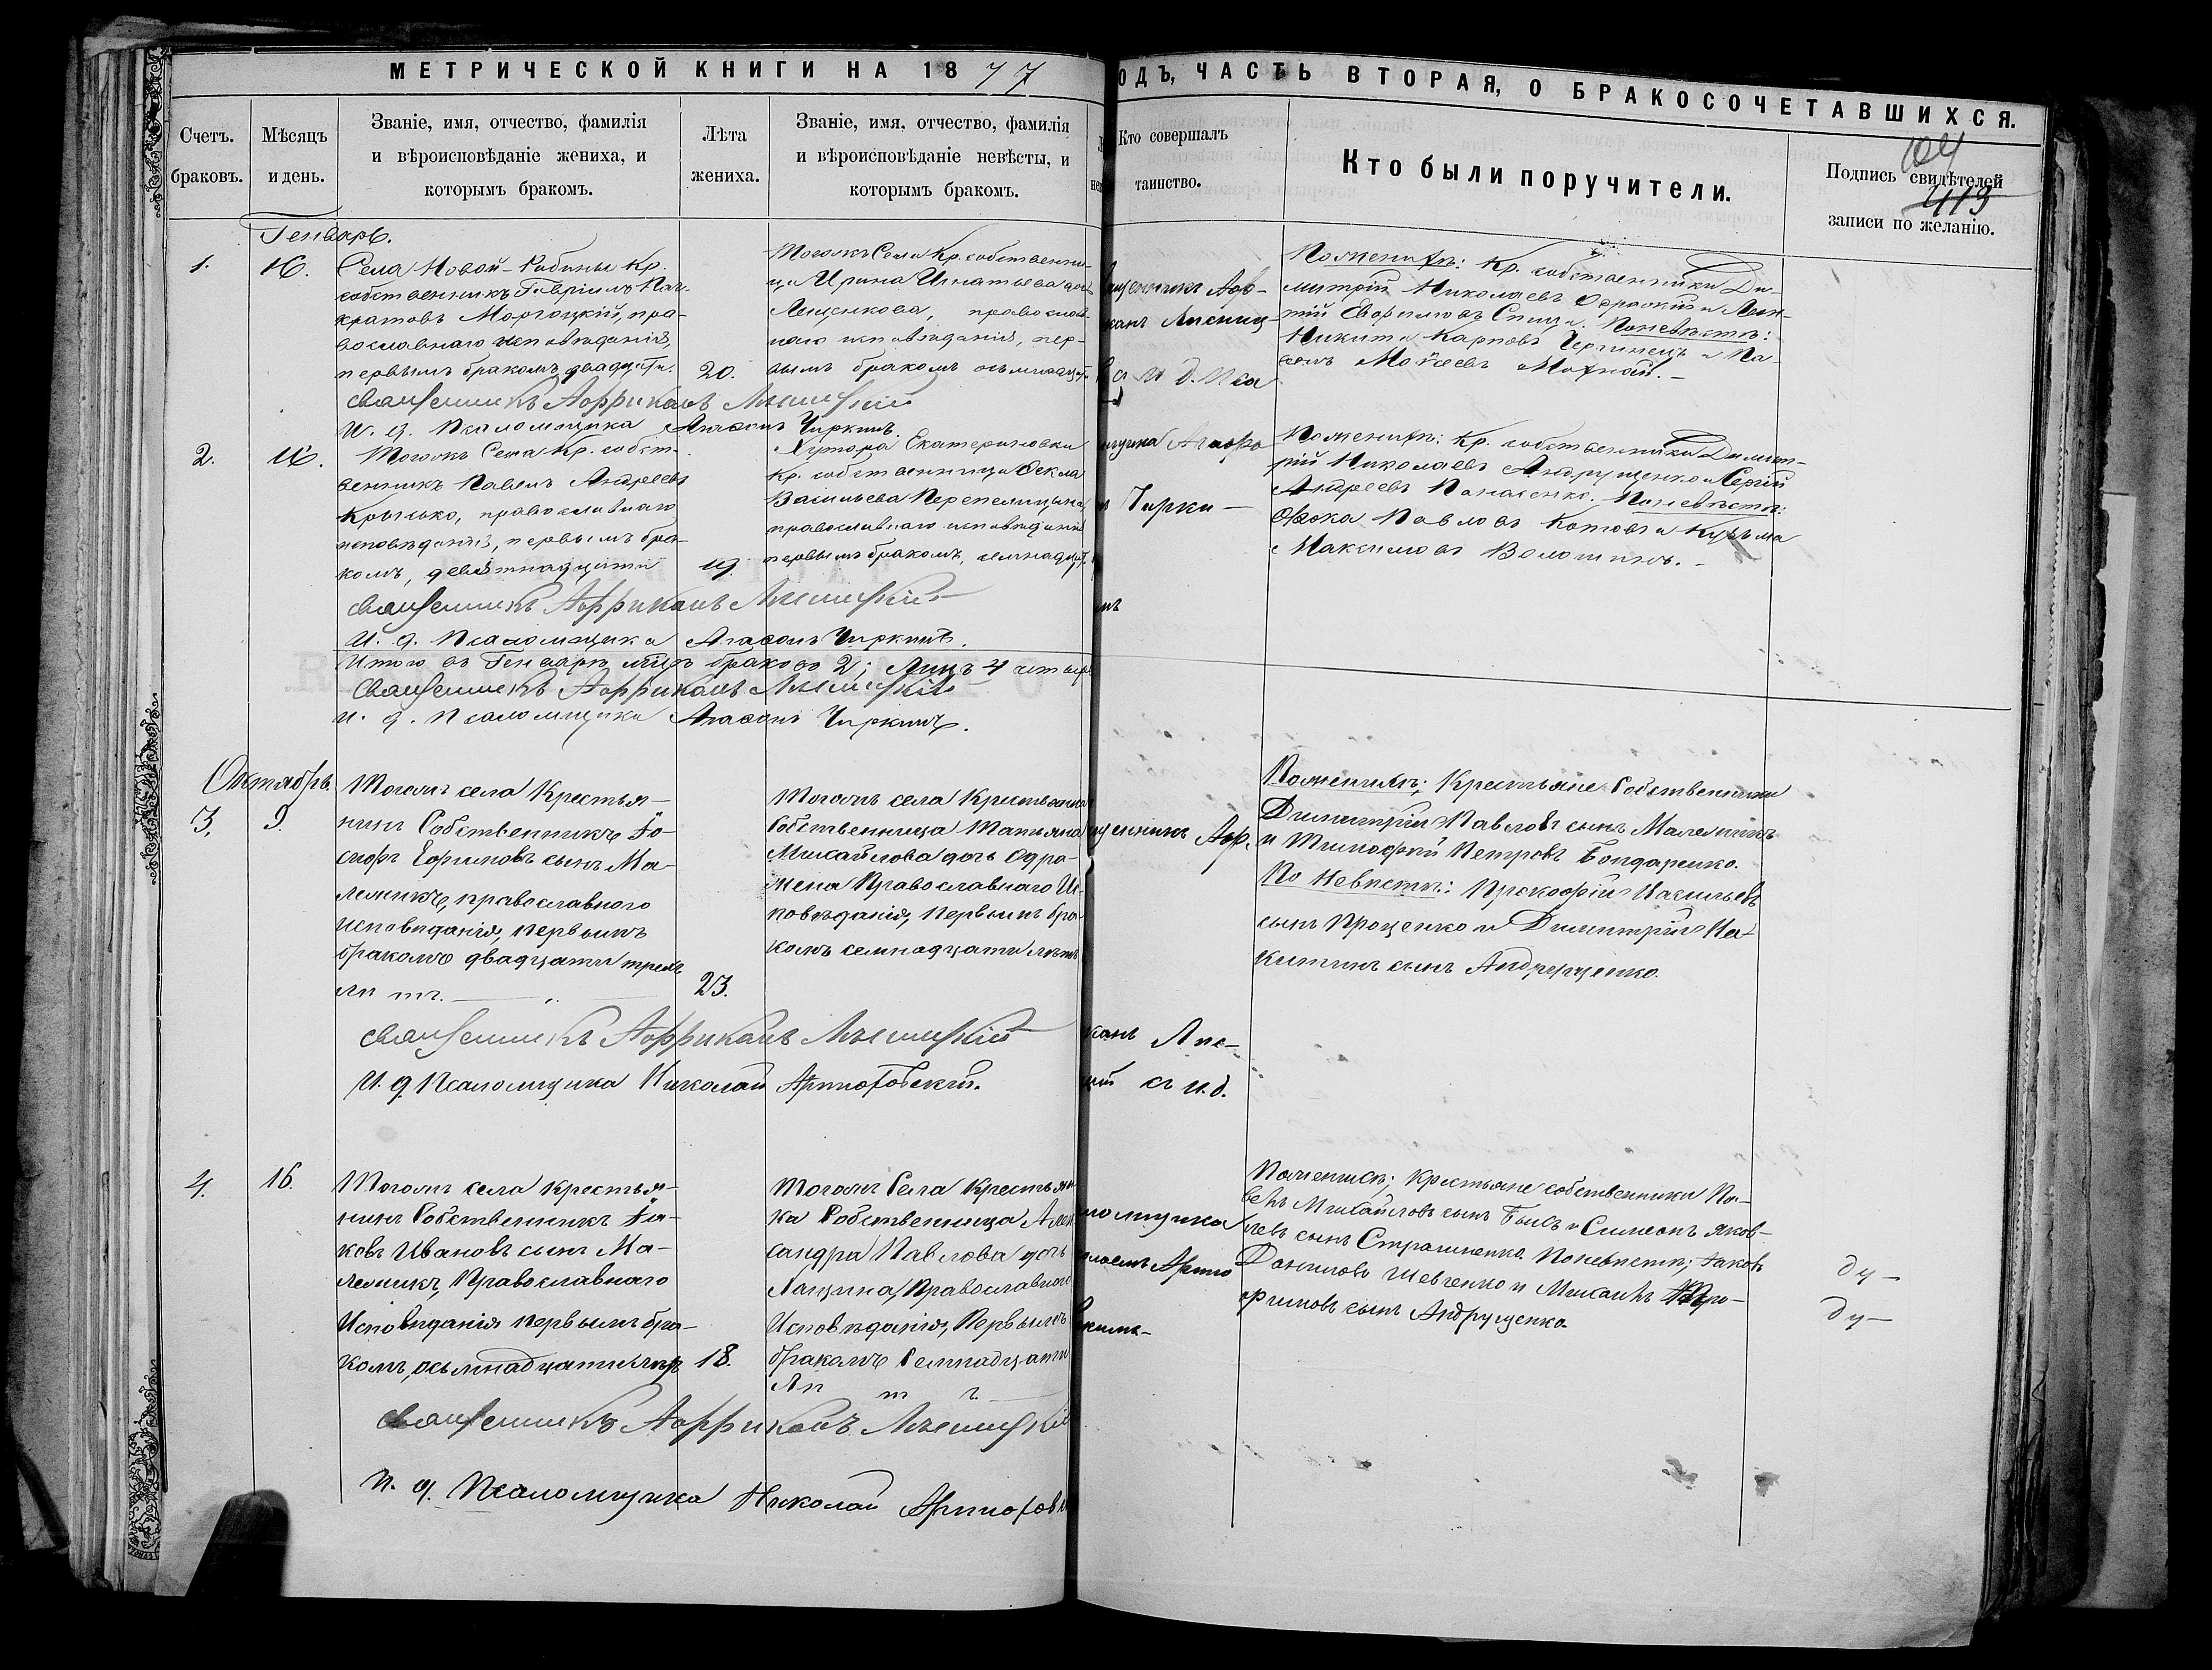 МЕТРИЧЕСКОЙ КНИГИ НА 1877
ОДЪ, ЧАСТЬ ВТОРАЯ, О БРАКОСОЧЕТАВШИХСЯ.
Счетъ.
браковъ.
Мѣсяцъ
и день.
Званіе, имя, отчество, фамилія
и вѣроисповѣданіе жениха, и
которымъ бракомъ.
Лѣта
жениха.
Званіе, имя, отчество, фамилія
и вѣроисповѣданіе невѣсты, и
которымъ бракомъ.
Кто совершалъ
таинство.
Кто были поручители.
Подпись свидѣтелей
записи по желанію.
413
Генварь.
1.
Села Новой-Рабины Кр.
собственникъ Гавріилъ Пан-
кратовъ Моргоцкій, пра-
вославнаго исповѣданія,
первымъ бракомъ двадцати.
20.
Тогожъ Села Кр. собственни-
ца Ирина Игнатьева дочь
Лещенкова, православ-
наго исповѣданія, пер-
вымъ бракомъ осьмнадцат.
щенникъ Афф-
канъ Лисиц-
съ и д. Пса
Поженихѣ: Кр. собственники Ди-
митрій Николаевъ и
Поневѣстѣ:
Никита Карповъ и Па-
велъ Моисеевъ
Священникъ Аффриканъ
И. д. Псаломщика Агаѳонъ Чиркинъ.
2.
Тогожъ Села Кр. собст-
венникъ Павелъ Андреевъ
Крысько, православнаго
исповѣданія, первымъ бра-
комъ, девятнадцати
19.
Хутора Екатериновки
Кр. собственница Ѳекла
Васильева Перепелицына,
православнаго исповѣданія
первымъ бракомъ, семнадцат.
мщика Агафо
Чирки-
Поженихѣ: Кр. собственники Димит-
рій Николаевъ Андрущенко и Сергій
Андреевъ Панасенко. Поневѣстѣ:
Ѳока Павловъ Котовъ и Кузьма
Максимовъ Волошинъ.-
Священникъ Аффриканъ
И. д. Псаломщика Агаѳонъ Чиркинъ.
Итого въ Генварѣ мцѣ браковъ 2; Лицъ 4 четыре
Священникъ Аффриканъ
и. д. Псаломщика Агаѳонъ Чиркинъ.
Октябрь.
3.
9.
Тогожъ села Крестья-
нинъ Собственникъ Іо-
сифъ Ефимовъ сынъ Ма-
лешикъ, православного
исповѣданія, первымъ
бракомъ двадцати трехъ
лѣтъ.
23.
Тогожъ села Крестьянка
Собственница Татьяна
Михайлова дочь Одра-
жена Православнаго Ис-
повѣданія, первымъ бра-
комъ семнадцати лѣтъ
щенникъ Афр.
Поженихѣ; Крестьяне Собственники
Димитрій Павловъ сынъ Малешикъ
и Тимофей Петровъ Бондаренко.
По невѣстѣ: Прокофій Васильевъ
сынъ Проценко и Димитрій Ни-
китинъ сынъ Андрущенко.
Священникъ Аффриканъ
канъ Лис-
И. д. Псаломщика Николай
кій съ и.д.
4.
16.
Тогожъ села Крестья-
нинъ Собственникъ Іа-
ковъ Ивановъ сынъ Ма-
лешикъ, Православнаго
Исповѣданія первымъ бра-
комъ, осьмнадцати лѣтъ
18.
Тогожъ Села Крестьян-
ка Собственница Алек-
сандра Павлова дочь
Лащина, Православнаго
Исповѣданія, Первымъ
бракомъ Семнадцати
Лѣтъ
ломщика
Поженихѣ; Крестьяне собственники Па-
велъ Михайловъ сынъ Быкъ и Симеонъ Яков-
левъ сынъ Страшненко. Поневѣстѣ; Іаковъ
Даниловъ Шевченко и Михаилъ Тро-
фимовъ сынъ Андрущенко.
Священникъ Аффриканъ
И. д. Псаломщика Николай